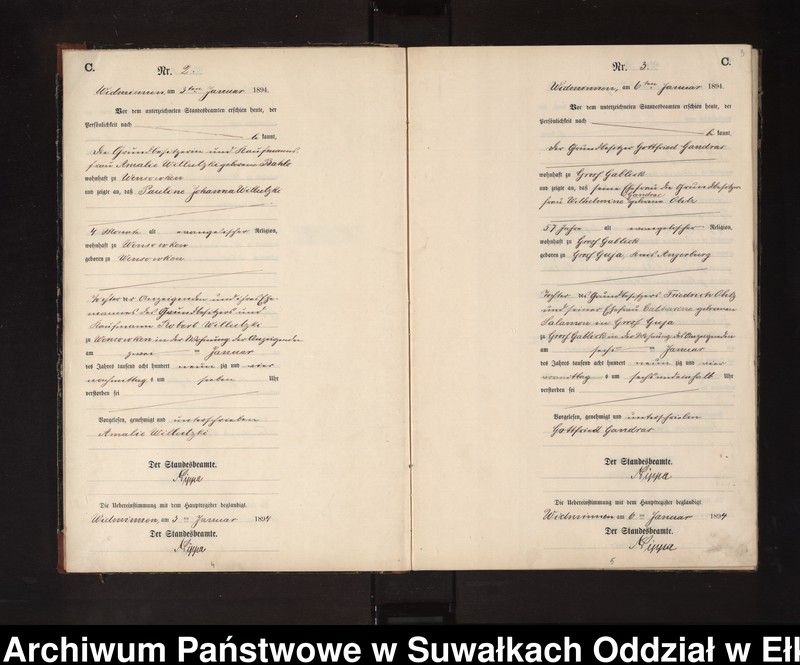 C.
Nr. 2.
Widminnen, am 3ten Januar 1894.
Vor dem unterzeichneten Standesbeamten erschien heute, der
Persönlichkeit nach
be kannt,
die Grundbesitzerin und Kaufmanns
frau Amalie Willutzki geborene
wohnhaft zu Wensowken
und zeigte an, daß Pauline Johanna Willutzki
4 Monate alt evangelischer Religion,
wohnhaft zu Wensowken
geboren zu Wensowken
Tochter der Anzeigenden und ihres Ehe
mannes des Grundbesitzers und
Kaufmann Robert Willutzki
zu Wensowken in der Wohnung der Anzeigenden
am zwei ten Januar
des Jahres tausend acht hundert neun zig und vier
vormittag s um sieben Uhr
verstorben sei
Vorgelesen, genehmigt und unterschrieben
Amalie Willutzki
Der Standesbeamte.
Nippa
Die Uebereinstimmung mit dem Hauptregister beglaubigt.
Widminnen, am 3. ten Januar 1894
Der Standesbeamte.
Nippa
3
C.
Nr. 3.
Widminnen, am 6ten Januar 1894.
Vor dem unterzeichneten Standesbeamten erschien heute, der
Persönlichkeit nach
be kannt,
der Grundbesitzer Gottfried Gandras
wohnhaft zu Groß Gablick
und zeigte an, daß seine Ehefrau die Grundbesitzer
frau Wilhelmine Gandras geborene
57 Jahre alt evangelischer Religion,
wohnhaft zu Groß Gablick
geboren zu Groß Guja, Kreis Angerburg
Tochter des Grundbesitzers Friedrich
und seiner Ehefrau geborenen
Salamon in Groß Guja
zu Groß Gablick in der Wohnung des Anzeigenden
am sechs ten Januar
des Jahres tausend acht hundert neun zig und vier
vormittag s um sechs und einhalb Uhr
verstorben sei
Vorgelesen, genehmigt und unterschrieben
Gottfried Gandras
Der Standesbeamte.
Nippa
Die Uebereinstimmung mit dem Hauptregister beglaubigt.
Widminnen am 6. ten Januar 1894
Der Standesbeamte.
Nippa
Archiwum Państwowe w Suwałkach Oddział w Ełk